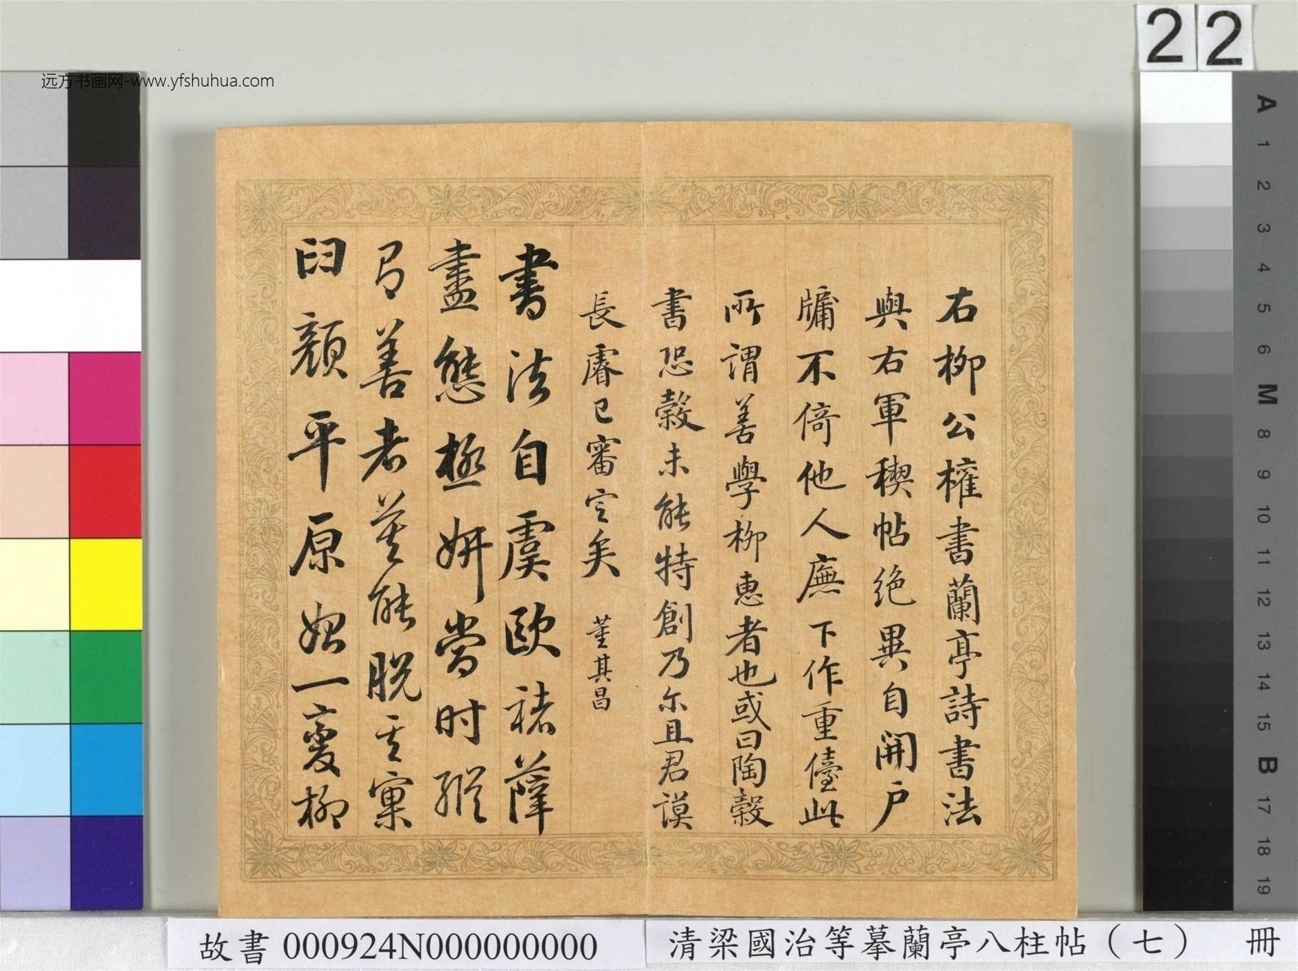 远方书画网-www.yfshuhua.com
22
右柳公權書蘭亭詩書法
與右軍稧帖絶異自開户
牖不倚他人廡下作重儓此
所謂善學柳惠者也或曰陶穀
書恐穀未能特創乃尔且君謨
長睿已審定矣 董其昌
書法自虞歐褚薛
盡態極妍當时縱
有善者莫能脱其窠
臼顔平原始一變柳
A
1
2
3
4
5
6
M
8
9
10
11
12
13
14
15
B
17
18
19
故書 000924N000000000
清梁國治等摹蘭亭八柱帖（七） 冊